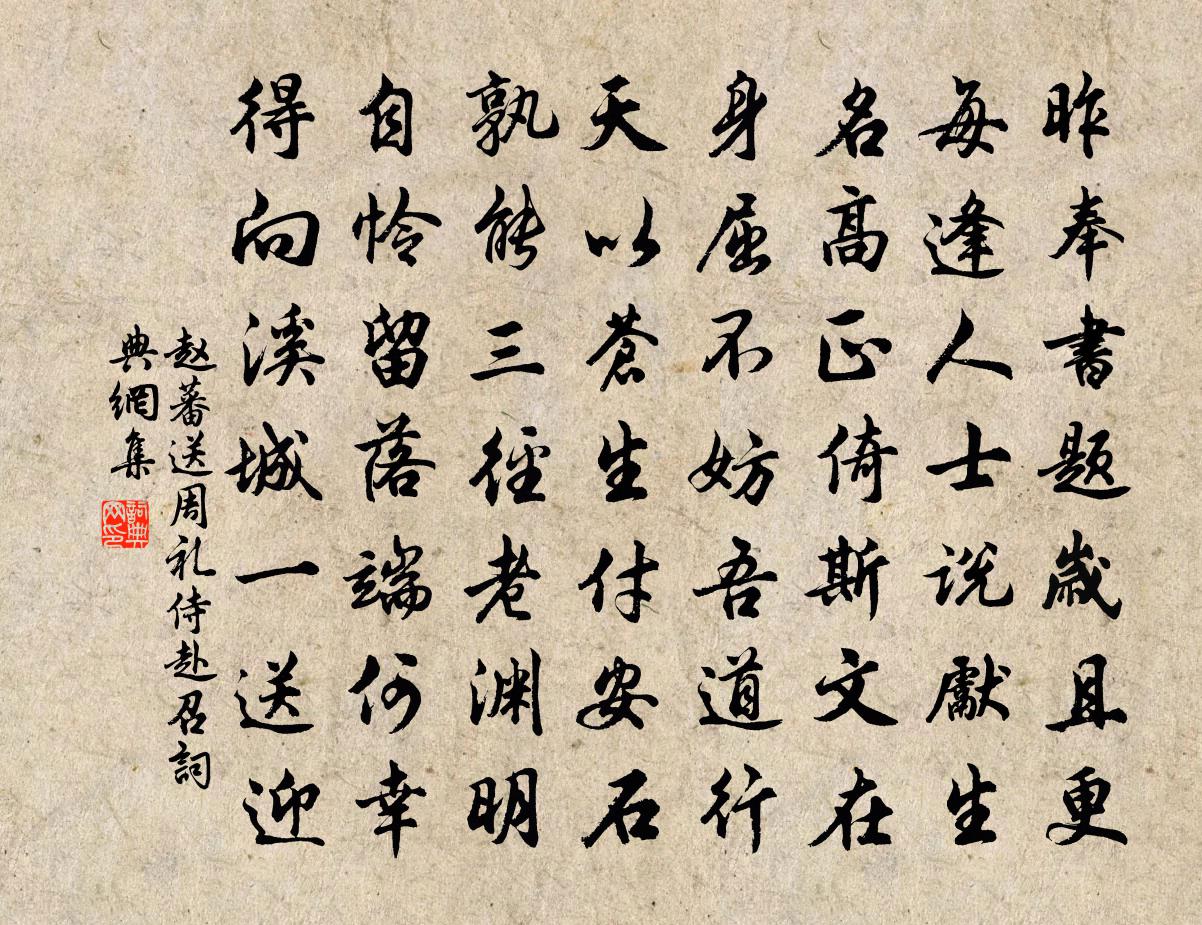 昨奉書題歲且更
每逢人士說獻生
名高正倚斯文在
身屈不妨吾道行
天以蒼生付安石
孰能三徑老淵明
自怜留落端何幸
得向溪城一送迎
赵蕃送周礼侍赴召詞
典網集
詞典
网印